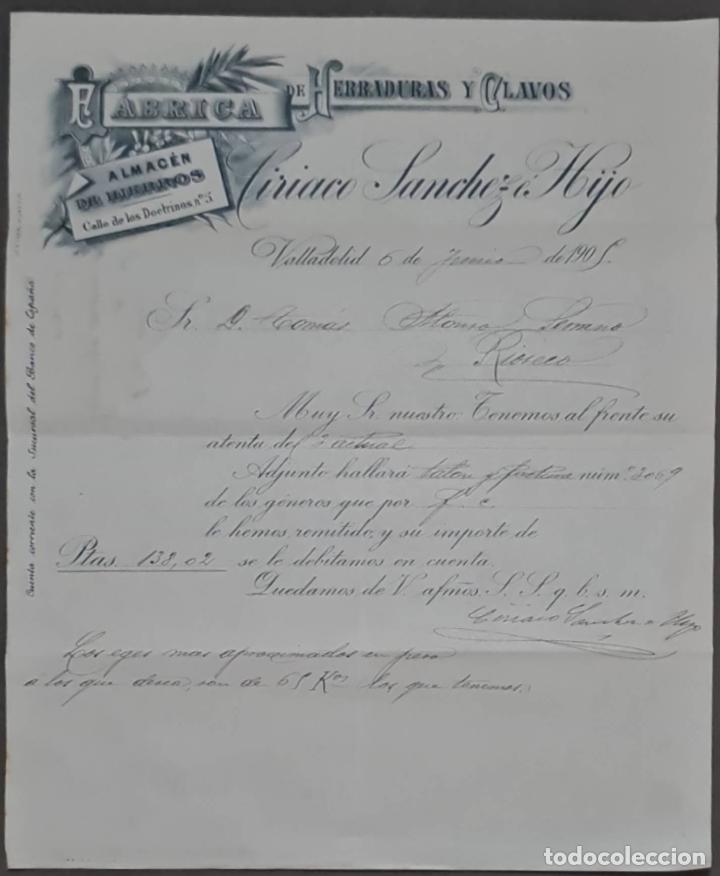 FÁBRICA DE HERRADURAS Y CLAVOS
ALMACÉN
DE HIERROS
Calle de los Doctrinos, nº 5
Ciriaco Sanchez é Hijo
Valladolid 6 de Junio de 1905.
Sr. D. Tomás Alonso
Rioseco
Muy Sr. nuestro: Tenemos al frente su
atenta del 3 actual
Adjunto hallará talón y factura núm.º 3069
de los géneros que por f. c.
le hemos remitido, y su importe de
Ptas. 138,02 se le debitamos en cuenta.
Quedamos de V. afmos. S. S. q. b. s. m.
Ciriaco Sanchez e Hijo
Los eges mas aproximados en peso
a los que desea, son de 65 Kos los que tenemos.
Cuenta corriente con la Sucursal del Banco de España
todocoleccion.net